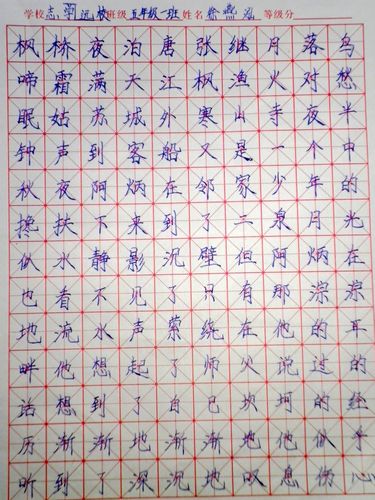 学校 班级 五年级一班 姓名 等级分
枫桥夜泊唐张继月落乌
啼霜满天江枫渔火对愁
眠姑苏城外寒山寺夜半
钟声到客船又是一个中
秋夜阿炳在邻家少年的
搀扶下来到了二泉月光
似水静影沉璧但阿炳在
也看不见了只有那淙淙
地流水声萦绕在他的耳
畔他想起了师父说过的
话想到了自己坎坷的经
历渐渐地渐渐地他似乎
听到了深沉地叹息伤心